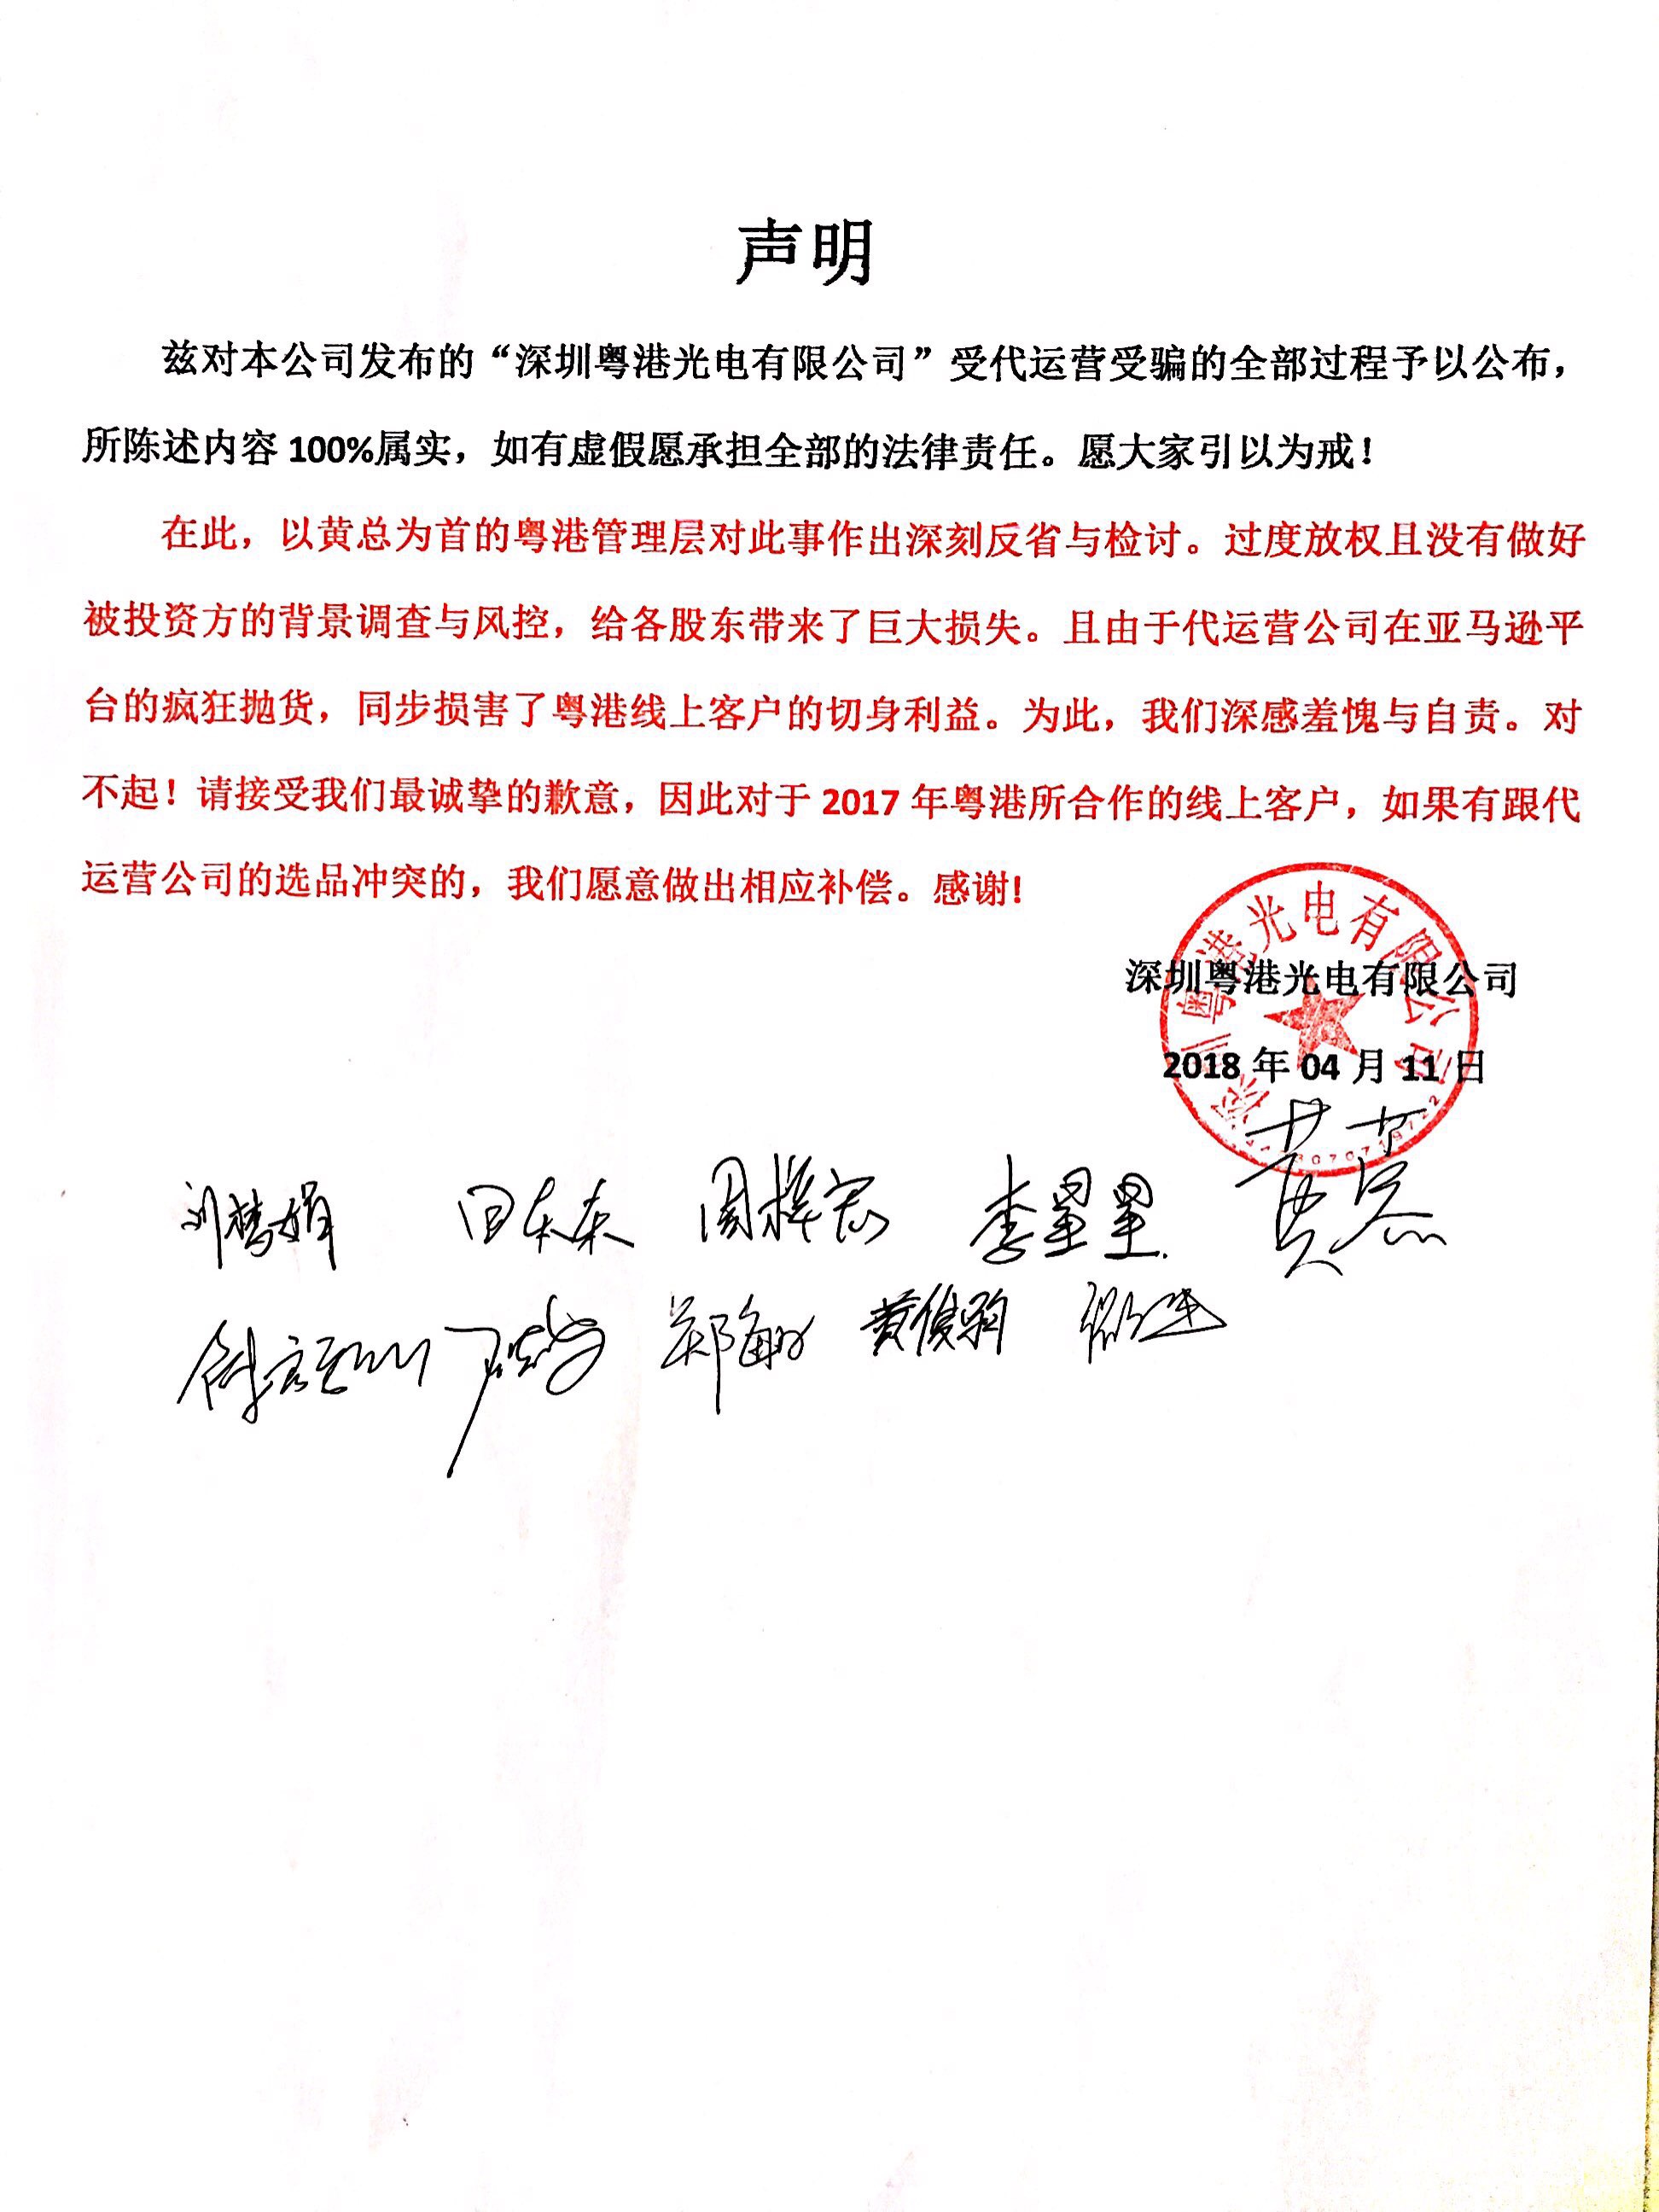 声明
兹对本公司发布的“深圳粤港光电有限公司”受代运营受骗的全部过程予以公布，
所陈述内容100%属实，如有虚假愿承担全部的法律责任。愿大家引以为戒！
在此，以黄总为首的粤港管理层对此事作出深刻反省与检讨。过度放权且没有做好
被投资方的背景调查与风控，给各股东带来了巨大损失。且由于代运营公司在亚马逊平
台的疯狂抛货，同步损害了粤港线上客户的切身利益。为此，我们深感羞愧与自责。对
不起！请接受我们最诚挚的歉意，因此对于2017年粤港所合作的线上客户，如果有跟代
运营公司的选品冲突的，我们愿意做出相应补偿。感谢!
深圳粤港光电有限公司
深圳粤港光电有限公司
2018年04月11日
刘梦娟 李星星
郑 黄俊